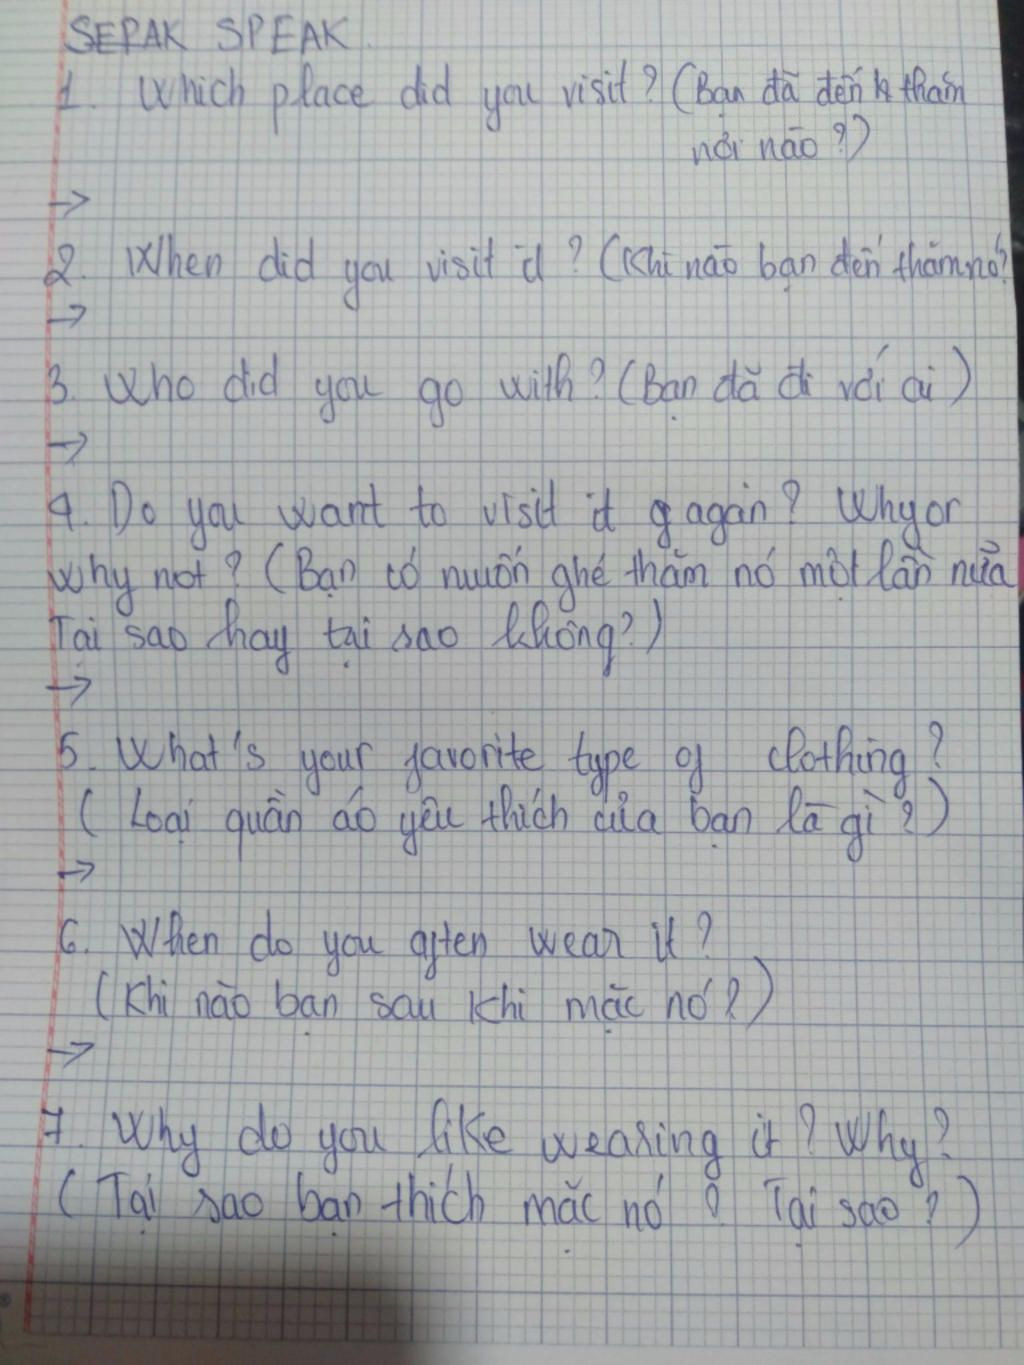 SEPAK SPEAK.
1. Which place did you visit? (Bạn đã đến thăm
nơi nào?)
→
2. When did you visit it? (Khi nào bạn đến thăm nó?
→
3. Who did you go with? (Bạn đã đi với ai)
→
4. Do you want to visit it agan? Why or
why not? (Bạn có muốn ghé thăm nó một lần nữa
Tại sao hay tại sao không?)
→
5. What's your favorite type of clothing?
( Loại quần áo yêu thích của bạn là gì?)
→
6. When do you often wear it?
(Khi nào bạn sau khi mặc nó?)
→
7. Why do you like wearing it? Why?
( Tại sao bạn thích mặc nó? Tại sao?)